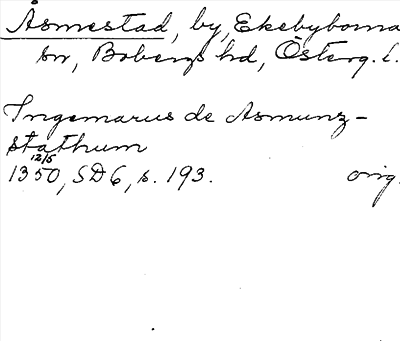 Åsmestad, by, Ekebyborna
sn, Bobergs hd, Österg. l.
Ingemarus de Asmunz-
stathum
12/5
1350, SD6, s. 193. orig.